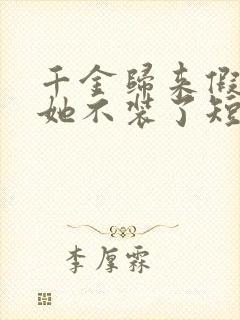 千金歸来假
她不装了短
李厚霖